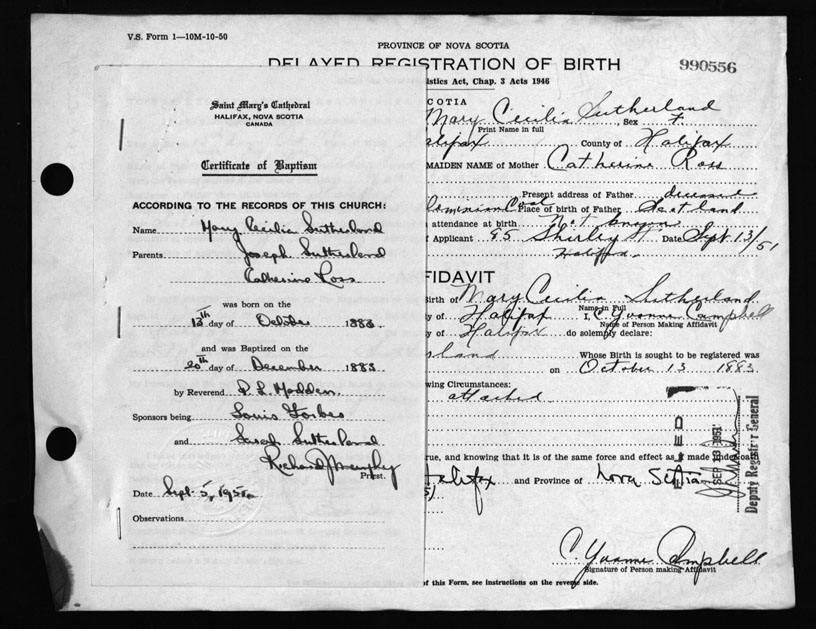 V.S. Form 1—10M-10-50
PROVINCE OF NOVA SCOTIA
DELAYED REGISTRATION OF BIRTH
990556
istics Act, Chap. 3 Acts 1946
Saint Mary's Cathedral
HALIFAX, NOVA SCOTIA
CANADA
Certificate of Baptism
ACCORDING TO THE RECORDS OF THIS CHURCH:
Name Mary Cecilia Sutherland
Parents Joseph Sutherland
Catherine Ross
was born on the
13th day of October 1883
and was Baptized on the
20th day of December 1883
by Reverend P. L. Madden
Sponsors being Louis Forbes
and Sarah Sutherland
Richard J. Murphy
Priest.
Date Sept. 5, 1951
Observations
COTIA
Mary Cecilia Sutherland, Sex F
Print Name in full
alifax County of Halifax
MAIDEN NAME of Mother Catherine Ross
Present address of Father deceased
Dominion Coal Place of birth of Father Scotland
attendance at birth Not known
Applicant 95 Shirley St. Date Sept 13/51
Halifax.
FIDAVIT
Birth of Mary Cecilia Sutherland
Name in Full
ty of Halifax I, C Yvonne Campbell
Name of Person Making Affidavit
ty of Halifax do solemnly declare:
rland Whose Birth is sought to be registered was
on October 13 1883
wing Circumstances:
attached
true, and knowing that it is of the same force and effect as if made under oath
Halifax and Province of Nova Scotia
51
FILED
SEP 13 1951
Deputy Registrar General
C. Yvonne Campbell
Signature of Person making Affidavit
of this Form, see instructions on the reverse side.